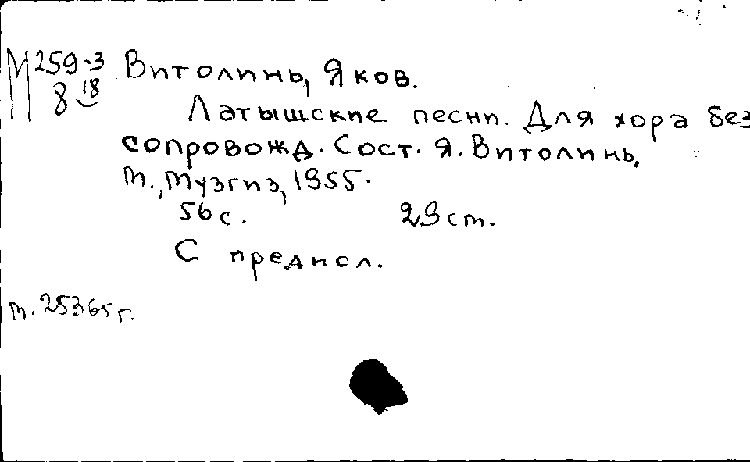 М259-3 Витолинь, Яков.
8 18
Латышские песни. Для хора без
сопровожд. Сост. Я. Витолинь.
М., Музгиз, 1955.
56 с. 29 см.
С предисл.
м. 25365 г.